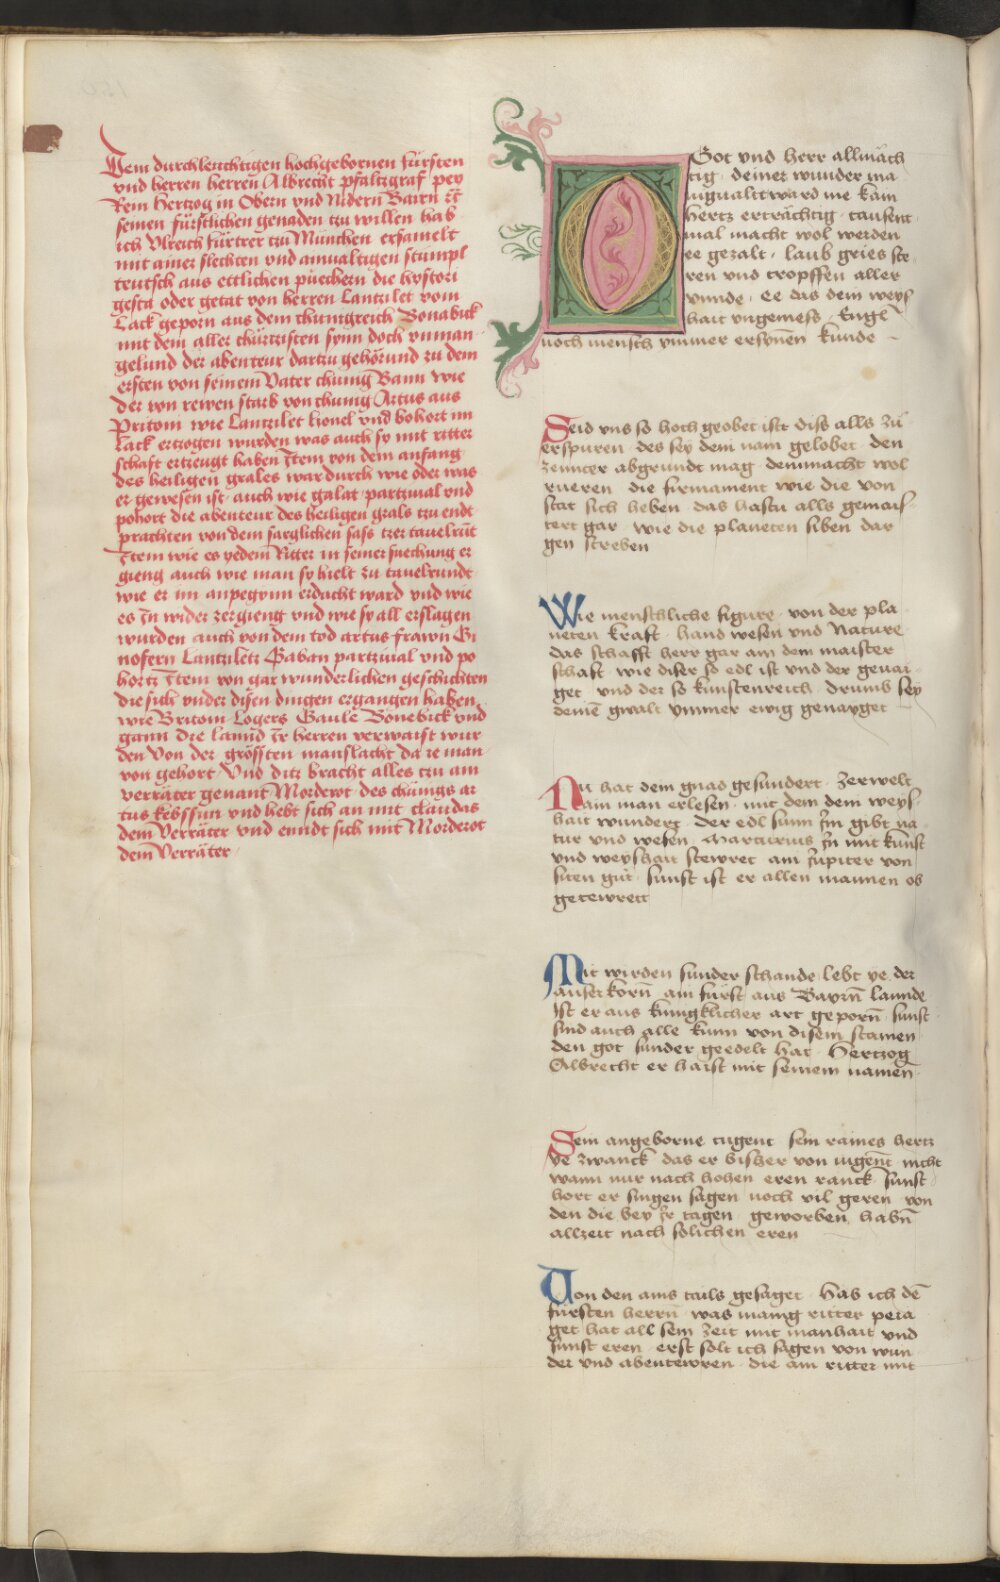 Dem durchleuchtigen hochgebornen fürsten
vnd herren herren Albrecht pfaltzgraf pey
Rein Hertzog in Obern vnd Nidern Bairn etc
seinen fürstlichen genaden tzu willen hab
ich Vlreich fürtrer tzu München ersamelt
mit ainer slechten vnd ainualtigen stumpl
teutsch aus ettlichen püechern die hystori
gesta oder getat von herren Lantzilet vom
Lack geporn aus dem chunigreich Bonabick
mit dem aller chürtzisten synn doch vnman
gelund der abenteur dartzu gehörund zu dem
ersten von seinem Vater chunig Bann wie
der von rewen starb von chunig Artus aus
Pritom wie Lantzilet lionel vnd bohort im
lack ertzogen wurden was auch sy mit ritter
schaft ertzeugt haben Item von dem anfang
des heiligen grales war durch wie oder was
er gewesen ist auch wie galat partziual vnd
pohort die abenteur des heiligen grals tzu endt
prachten von dem sarglichen säss tzer tauelrüt
Item wie es yedem Ritter in seiner suechung er
gieng auch wie man sy hielt zu tauelrundt
wie er im anpegynn erdacht ward vnd wie
es In wider zergieng vnd wie sy all erslagen
wurden auch von dem tod artus frawn Gi
nofern Lantziletz Gaban partziual vnd po
hortz Item von gar wunderlichen geschichten
die sich vnder disen dingen ergangen haben
wie Britoni Logers Gaule Bonebick vnd
gann die lannd Ir herren verwaist wur
den Von der grössten manslacht da ie man
von gehort Vnd ditz bracht alles tzu am
verräter genant Morderot des chünigs ar
tus kebssun vnd hebt sich an mit claudas
dem Verräter vnd enndt sich mit Morderot
dem Verräter
O Got vnd herr allmäch
tig deiner wunder ma
nigualtt ward nie kain
hertz erträchtig tausent
mal macht wol werden
ee gezalt laub gries ste
ren vnd tropffen aller
vnnde ee das dein weys
hait vngemess Engl
noch mensch ymmer ersynnen kunde
Seid vns so hoch geobet ist diss alls zů
erspuren des sey dein nam gelobet den
zennter abgrundt mag dein macht wol
rueren die firmament wie die von
stat sich heben das hastu alls gemais
tert gar wie die planeten siben dar
gen streben
Wie menschliche figure von der pla
neten kraft hand wesen vnd Nature
das schafft herr gar ain dem maister
schaft wie diser so edl ist vnd der genai
get vnd der so kunstenreich drumb sey
deinē gwalt ymmer ewig genayget
Nu hat dein gnad gesundert zer welt
ain man erlesen mit dem dein weys
hait wundert der edl sunn Im gibt na
tur vnd wesen Martturius In mit kunst
vnd weyshait stewret am Jupiter von
siten gůt sunst ist er allen mannen ob
getewrett
Mit wirden sunder schande lebt ye der
auserkorn̄ ain fürst aus Bayrn̄ lannde
Ist er aus kunigklicher art geporn̄ sunst
sind auch alle kunn von disem stamen
den got sunder geedelt hat Hertzog
Albrecht er haist mit seinem namen
Sein angeborne tugent sein raines hertz
ye zwanck das er bisher von iugent nicht
wann nur nach hohen eren ranck sunst
hort er singen sagen noch vil geren von
den die bey Ir tagen geworben habn̄
allzeit nach solichen eren
Von den ains tails gesaget hab ich dē
fürsten herrn̄ was manig ritter peia
get hat all sein zeit mit manhait vnd
sunst eren erst solt ich sagen von wun
der vnd abentewren die ain ritter mit